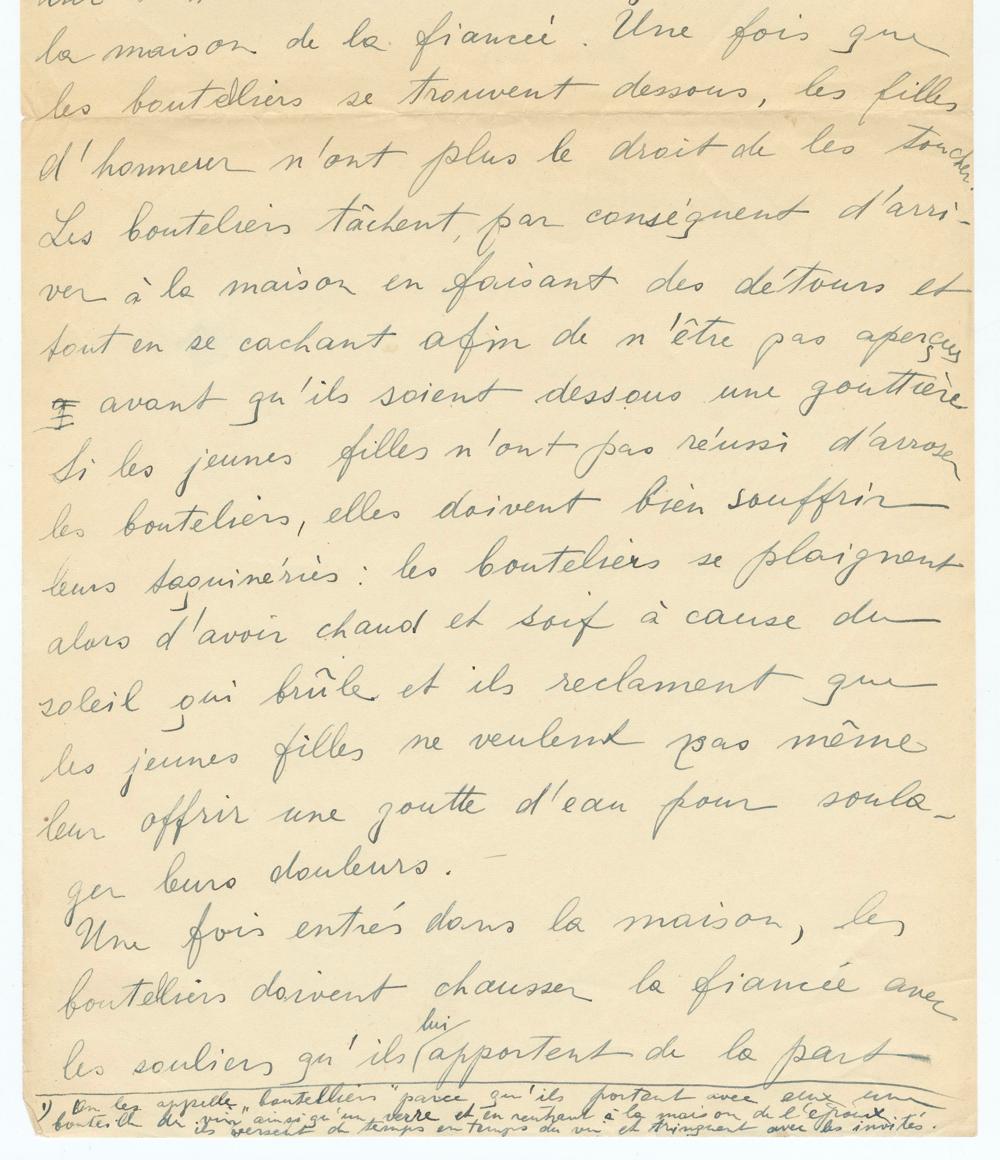 la maison de la fiancée. Une fois que
les boutelliers se trouvent dessous, les filles
d'honneur n'ont plus le droit de les toucher.
Les bouteliers tâchent, par conséquent d'arri-
ver à la maison en faisant des détours et
tout en se cachant afin de n'être pas aperçus
avant qu'ils soient dessous une gouttière
Si les jeunes filles n'ont pas réussi d'arroser
les bouteliers, elles doivent bien souffrir
leurs taquinéries : les bouteliers se plaignent
alors d'avoir chaud et soif à cause du
soleil qui brûle et ils reclament que
les jeunes filles ne veulent pas même
leur offrir une goutte d'eau pour soula-
ger leurs douleurs.
Une fois entrés dans la maison, les
boutelliers doivent chausser la fiancée avec
les souliers qu'ils lui apportent de la part
1) On les appelle "boutelliers" parce qu'ils portent avec eux une
bouteille du vin ainsi qu'un verre et en rentrant à la maison de l'époux
ils versent de temps en temps du vin et trinquent avec les invités.